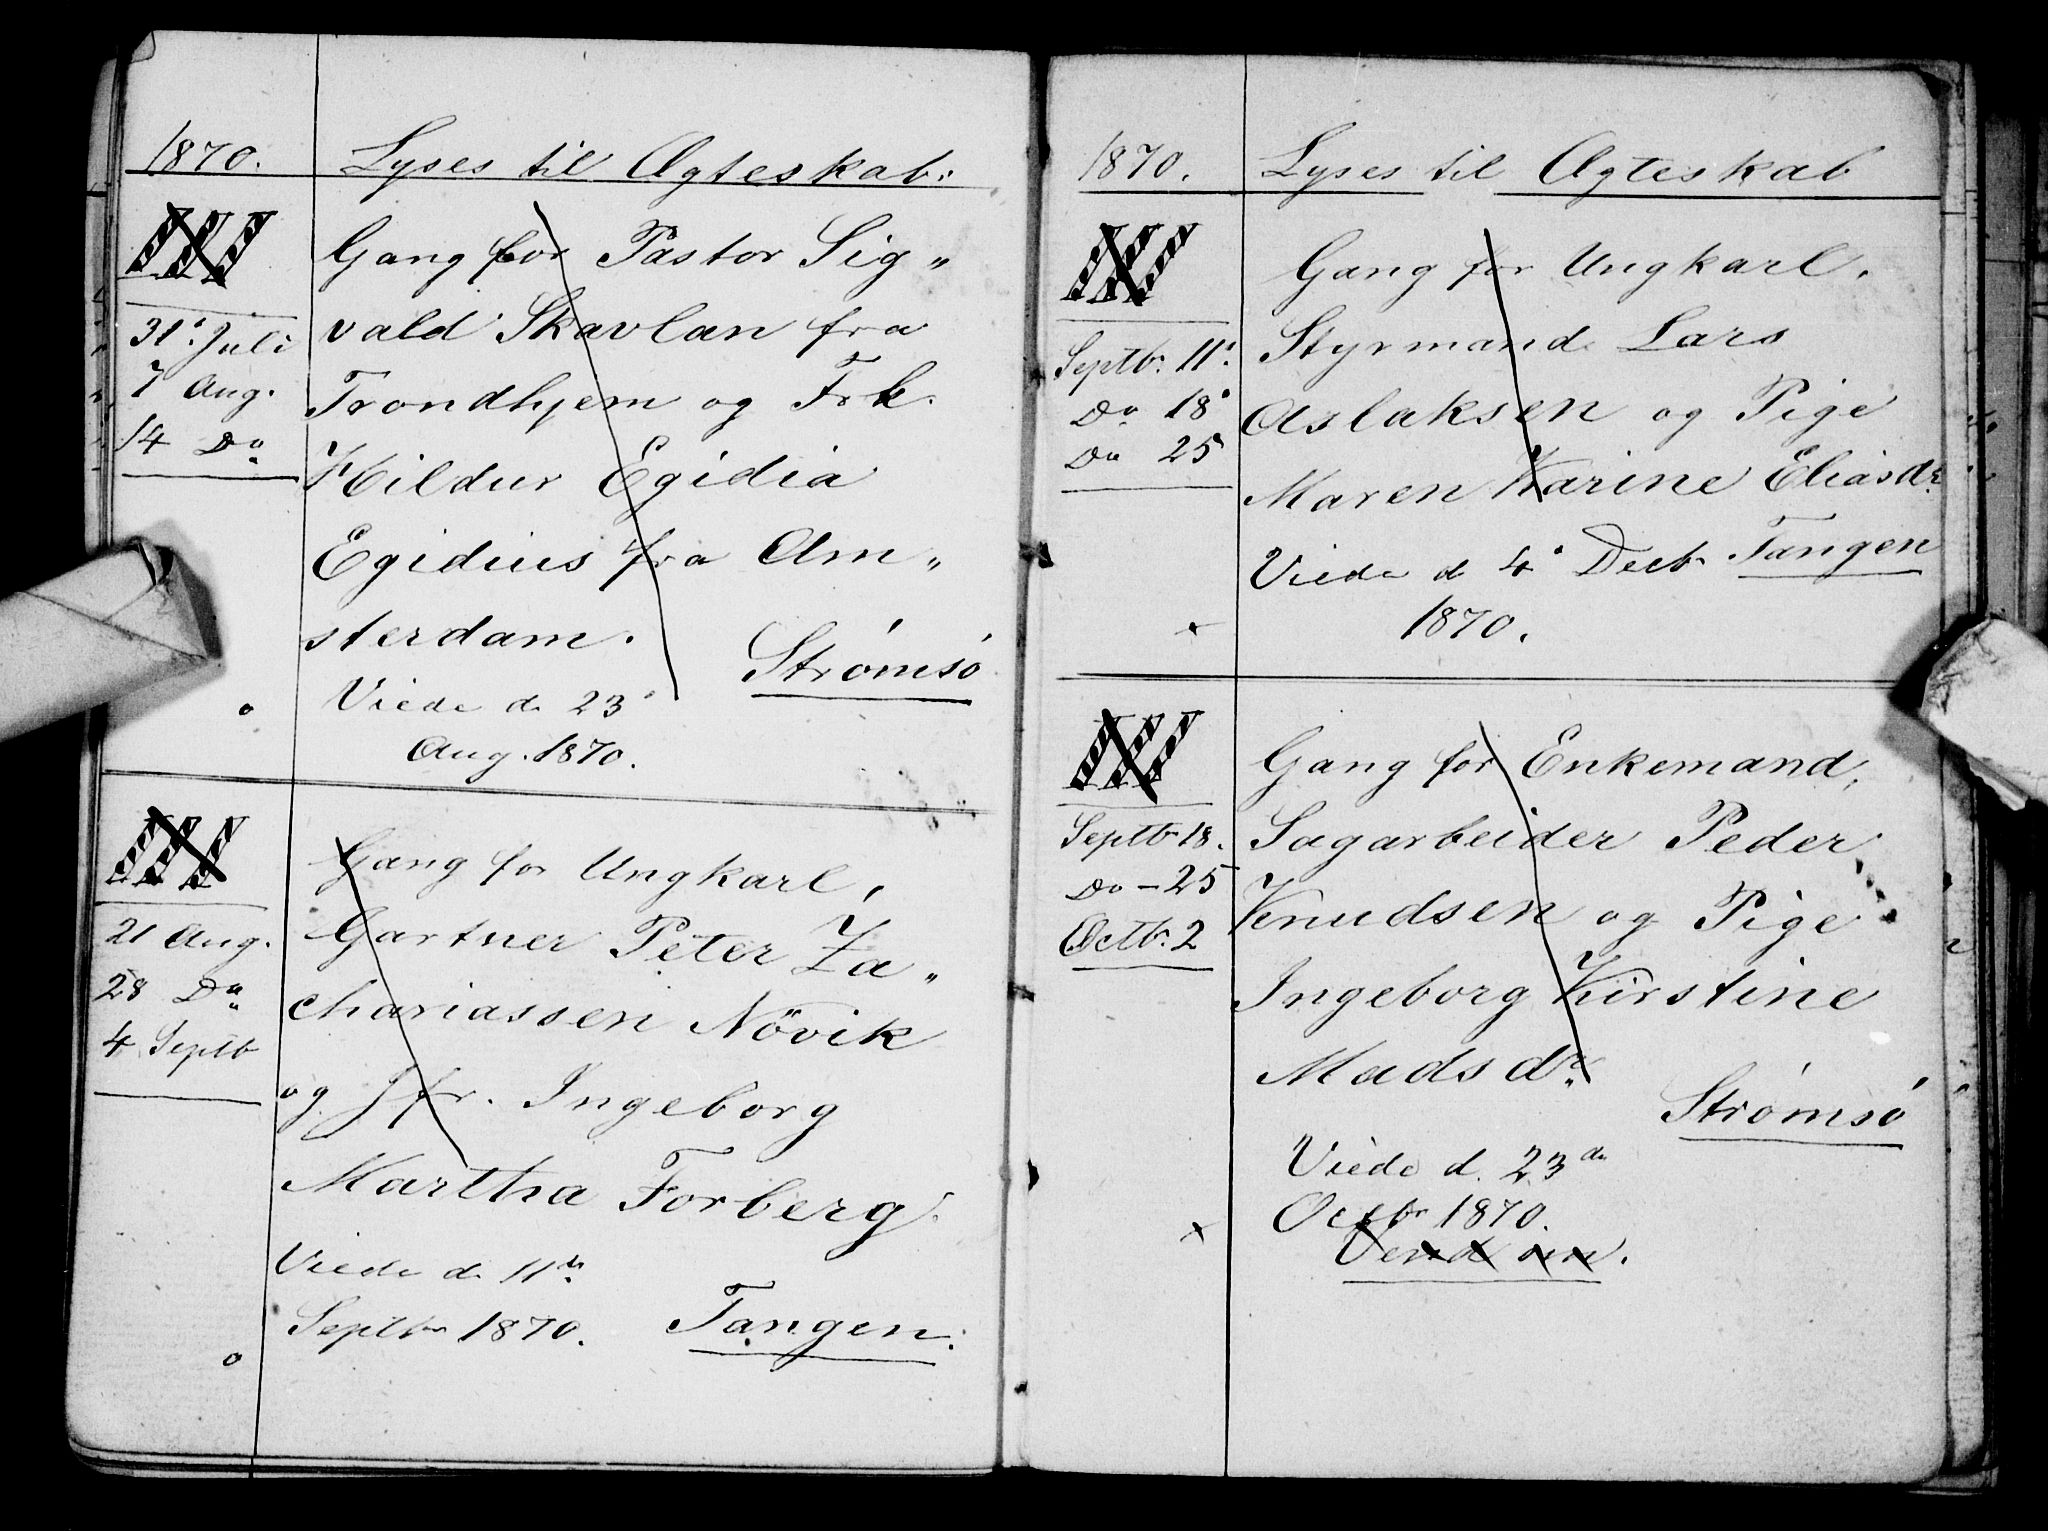 1870. Lyses til Ægteskab:
III Gang for Pastor Sig„
31' Juli vald Skavlan fra
7 Aug. Trondhjem og Frk.
14 Do Hildur Egidia
Egidius fra Am„
sterdam.
Strømsø
Viede d. 23'
Aug. 1870.
III Gang for Ungkarl,
21 Aug. Gartner Peter Za„
28 Do chariassen Növik
4 Septb og Jfr. Ingeborg
Martha Forberg.
Viede d. 11te
Septbr 1870. Tangen.
1870. Lyses til Ægteskab
III Gang for Ungkarl,
Septb. 11' Styrmand Lars
Do 18' Aslaksen og Pige
Do 25 Maren Karine Eliasdr
Viede d 4' Decbr Tangen
1870.
III Gang for Enkemand,
Septbr 18. Sagarbeider Peder
Do - 25 Knudsen og Pige
Octb. 2 Ingeborg Kirstine
Madsdr
Strømsø
Viede d. 23de
Octbr 1870.
Vend om.